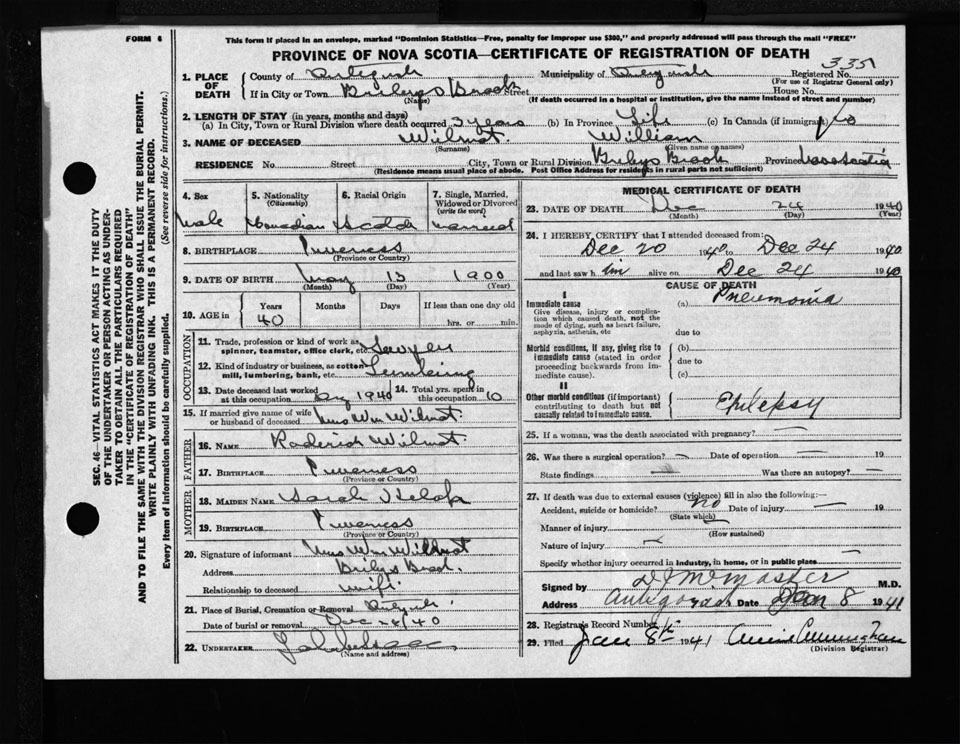 FORM 4
This form if placed in an envelope, marked "Dominion Statistics—Free, penalty for improper use $300," and properly addressed will pass through the mail "FREE"
PROVINCE OF NOVA SCOTIA—CERTIFICATE OF REGISTRATION OF DEATH
335
SEC. 46—VITAL STATISTICS ACT MAKES IT THE DUTY
OF THE UNDERTAKER OR PERSON ACTING AS UNDER-
TAKER TO OBTAIN ALL THE PARTICULARS REQUIRED
IN THE "CERTIFICATE OF REGISTRATION OF DEATH"
AND TO FILE THE SAME WITH THE DIVISION REGISTRAR WHO SHALL ISSUE THE BURIAL PERMIT.
WRITE PLAINLY WITH UNFADING INK. THIS IS A PERMANENT RECORD.
Every item of information should be carefully supplied. (See reverse side for instructions.)
1. PLACE OF DEATH
County of Antigonish Municipality of Antigonish Registered No.
(For use of Registrar General only)
If in City or Town Brileys Brook Street House No.
(Name) (If death occurred in a hospital or institution, give the name instead of street and number)
2. LENGTH OF STAY (in years, months and days)
(a) In City, Town or Rural Division where death occurred 3 years (b) In Province Life (c) In Canada (if immigrant)
3. NAME OF DECEASED Wilmot William
(Surname) (Given name or names)
RESIDENCE No Street City, Town or Rural Division Brileys Brook Province Nova Scotia
(Residence means usual place of abode. Post Office Address for residents in rural parts not sufficient)
4. Sex
Male
5. Nationality
(Citizenship)
Canadian
6. Racial Origin
Scotch
7. Single, Married, Widowed or Divorced
(write the word)
married
8. BIRTHPLACE Inverness
(Province or Country)
9. DATE OF BIRTH May 13 1900
(Month) (Day) (Year)
10. AGE in Years Months Days If less than one day old
40 hrs. or min.
OCCUPATION
11. Trade, profession or kind of work as spinner, teamster, office clerk, etc. Sawyer
12. Kind of industry or business, as cotton mill, lumbering, bank, etc. Lumbering
13. Date deceased last worked at this occupation 1940
14. Total yrs. spent in this occupation 10
15. If married give name of wife or husband of deceased Mrs Wm Wilmot
FATHER
16. NAME Roderick Wilmot
17. BIRTHPLACE Inverness
(Province or Country)
MOTHER
18. MAIDEN NAME Sarah
19. BIRTHPLACE Inverness
(Province or Country)
20. Signature of informant Mrs Wm Wilmot
Address Brileys Brook
Relationship to deceased wife
21. Place of Burial, Cremation or Removal
Date of burial or removal Dec 40
22. UNDERTAKER
(Name and address)
MEDICAL CERTIFICATE OF DEATH
23. DATE OF DEATH Dec 24 1940
(Month) (Day)
24. I HEREBY CERTIFY that I attended deceased from:
Dec 20 1940 to Dec 24 1940
and last saw h im alive on Dec 24 1940
CAUSE OF DEATH
I
Immediate cause (a) Pneumonia
Give disease, injury or complica-
tion which caused death, not the
mode of dying, such as heart failure,
asphyxia, asthenia, etc
due to
Morbid conditions, if any, giving rise to (b)
immediate cause (stated in order due to
proceeding backwards from im-
mediate cause). (c)
II
Other morbid conditions (if important) Epilepsy
contributing to death but not
causally related to immediate cause.
25. If a woman, was the death associated with pregnancy? —
26. Was there a surgical operation? — Date of operation — 19
State findings — Was there an autopsy? —
27. If death was due to external causes (violence) fill in also the following:—
Accident, suicide or homicide? no Date of injury — 19
(State which)
Manner of injury —
(How sustained)
Nature of injury —
Specify whether injury occurred in industry, in home, or in public place —
Signed by McMaster M.D.
Address Antigonish Date Jan 8 1941
28. Registrar's Record Number
29. Filed Jan 8th 1941 Annie Cunningham
(Division Registrar)